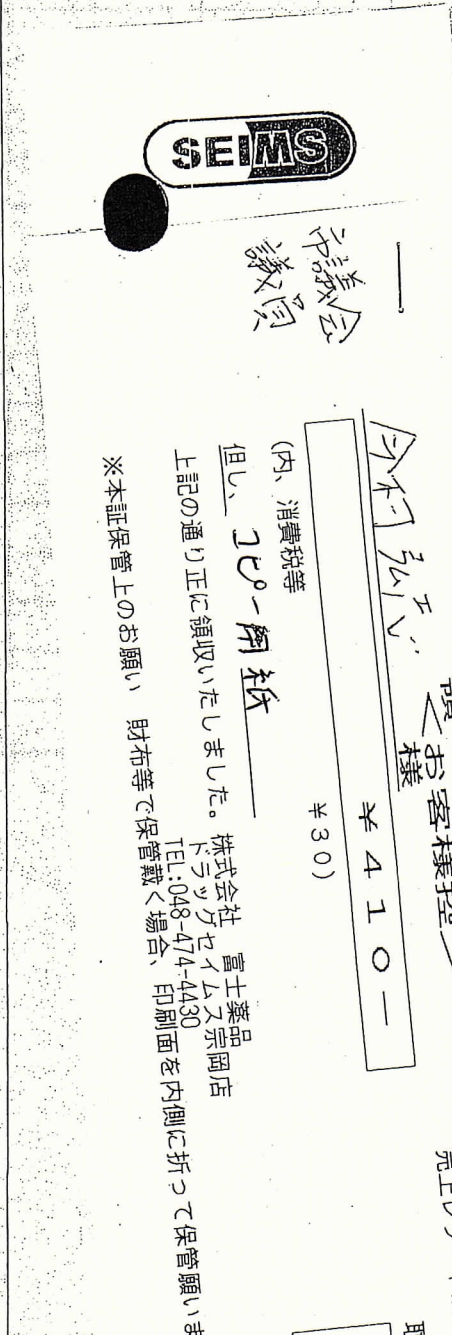 <お客様控>
市議会
議員
今村弘 様
¥410-
(内、消費税等 ¥30)
但し、コピー用紙
上記の通り正に領収いたしました。
株式会社 富士薬品
ドラッグセイムス宗岡店
TEL:048-474-4430
※本証保管上のお願い 財布等で保管戴く場合、印刷面を内側に折って保管願いま
SEIMS